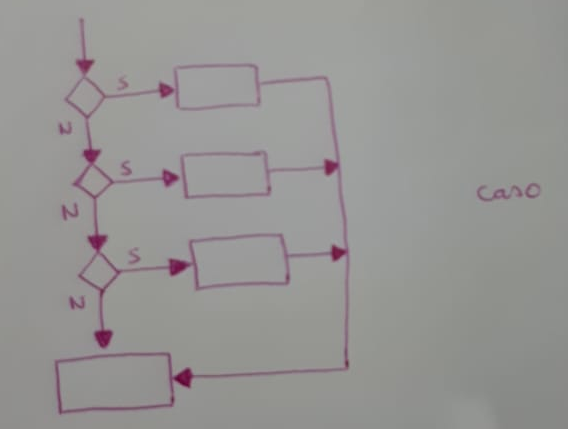 S
N
S
N
S
N
caso